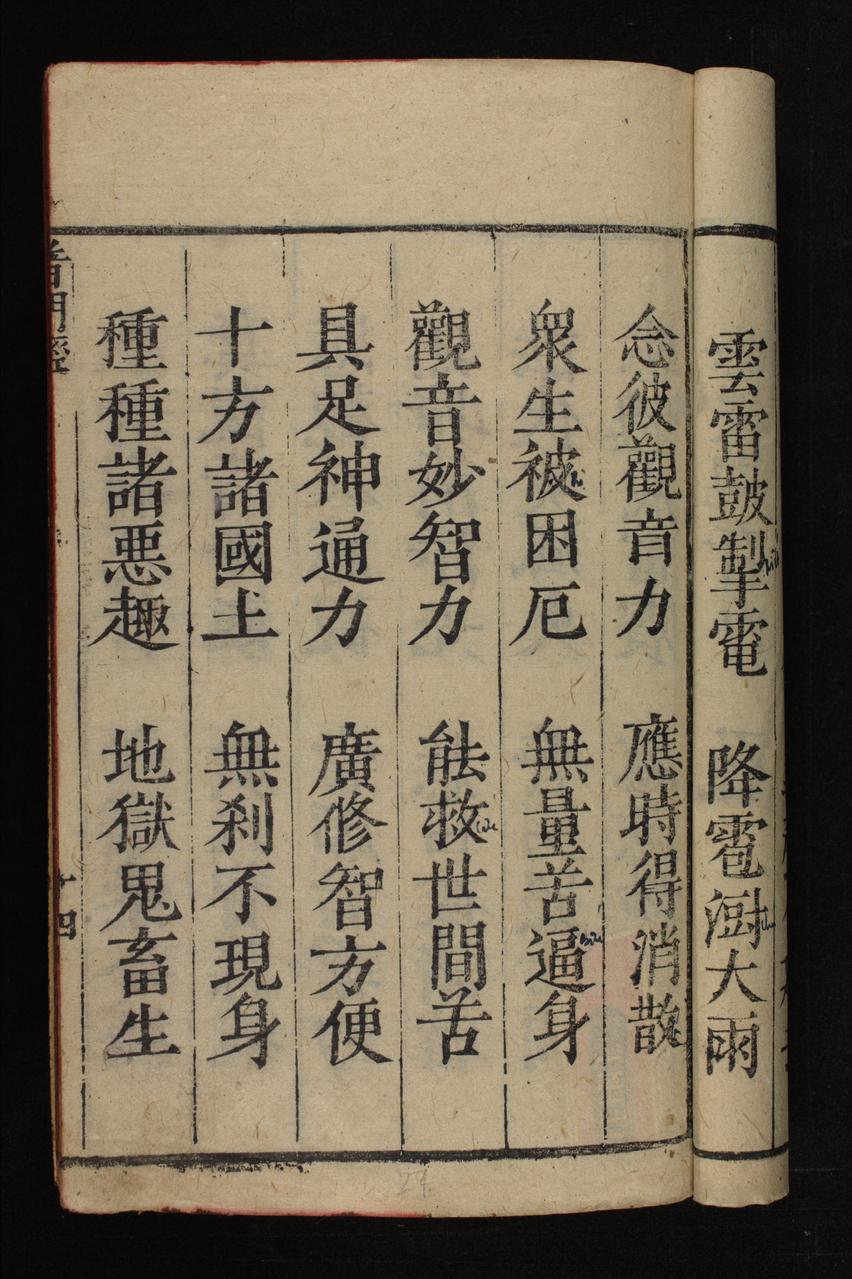 雲雷鼓掣電 降雹澍大雨
念彼觀音力 應時得消散
衆生被困厄 無量苦逼身
觀音妙智力 能救世間苦
具足神通力 廣修智方便
十方諸國土 無刹不現身
種種諸惡趣 地獄鬼畜生
普門經
十四
24